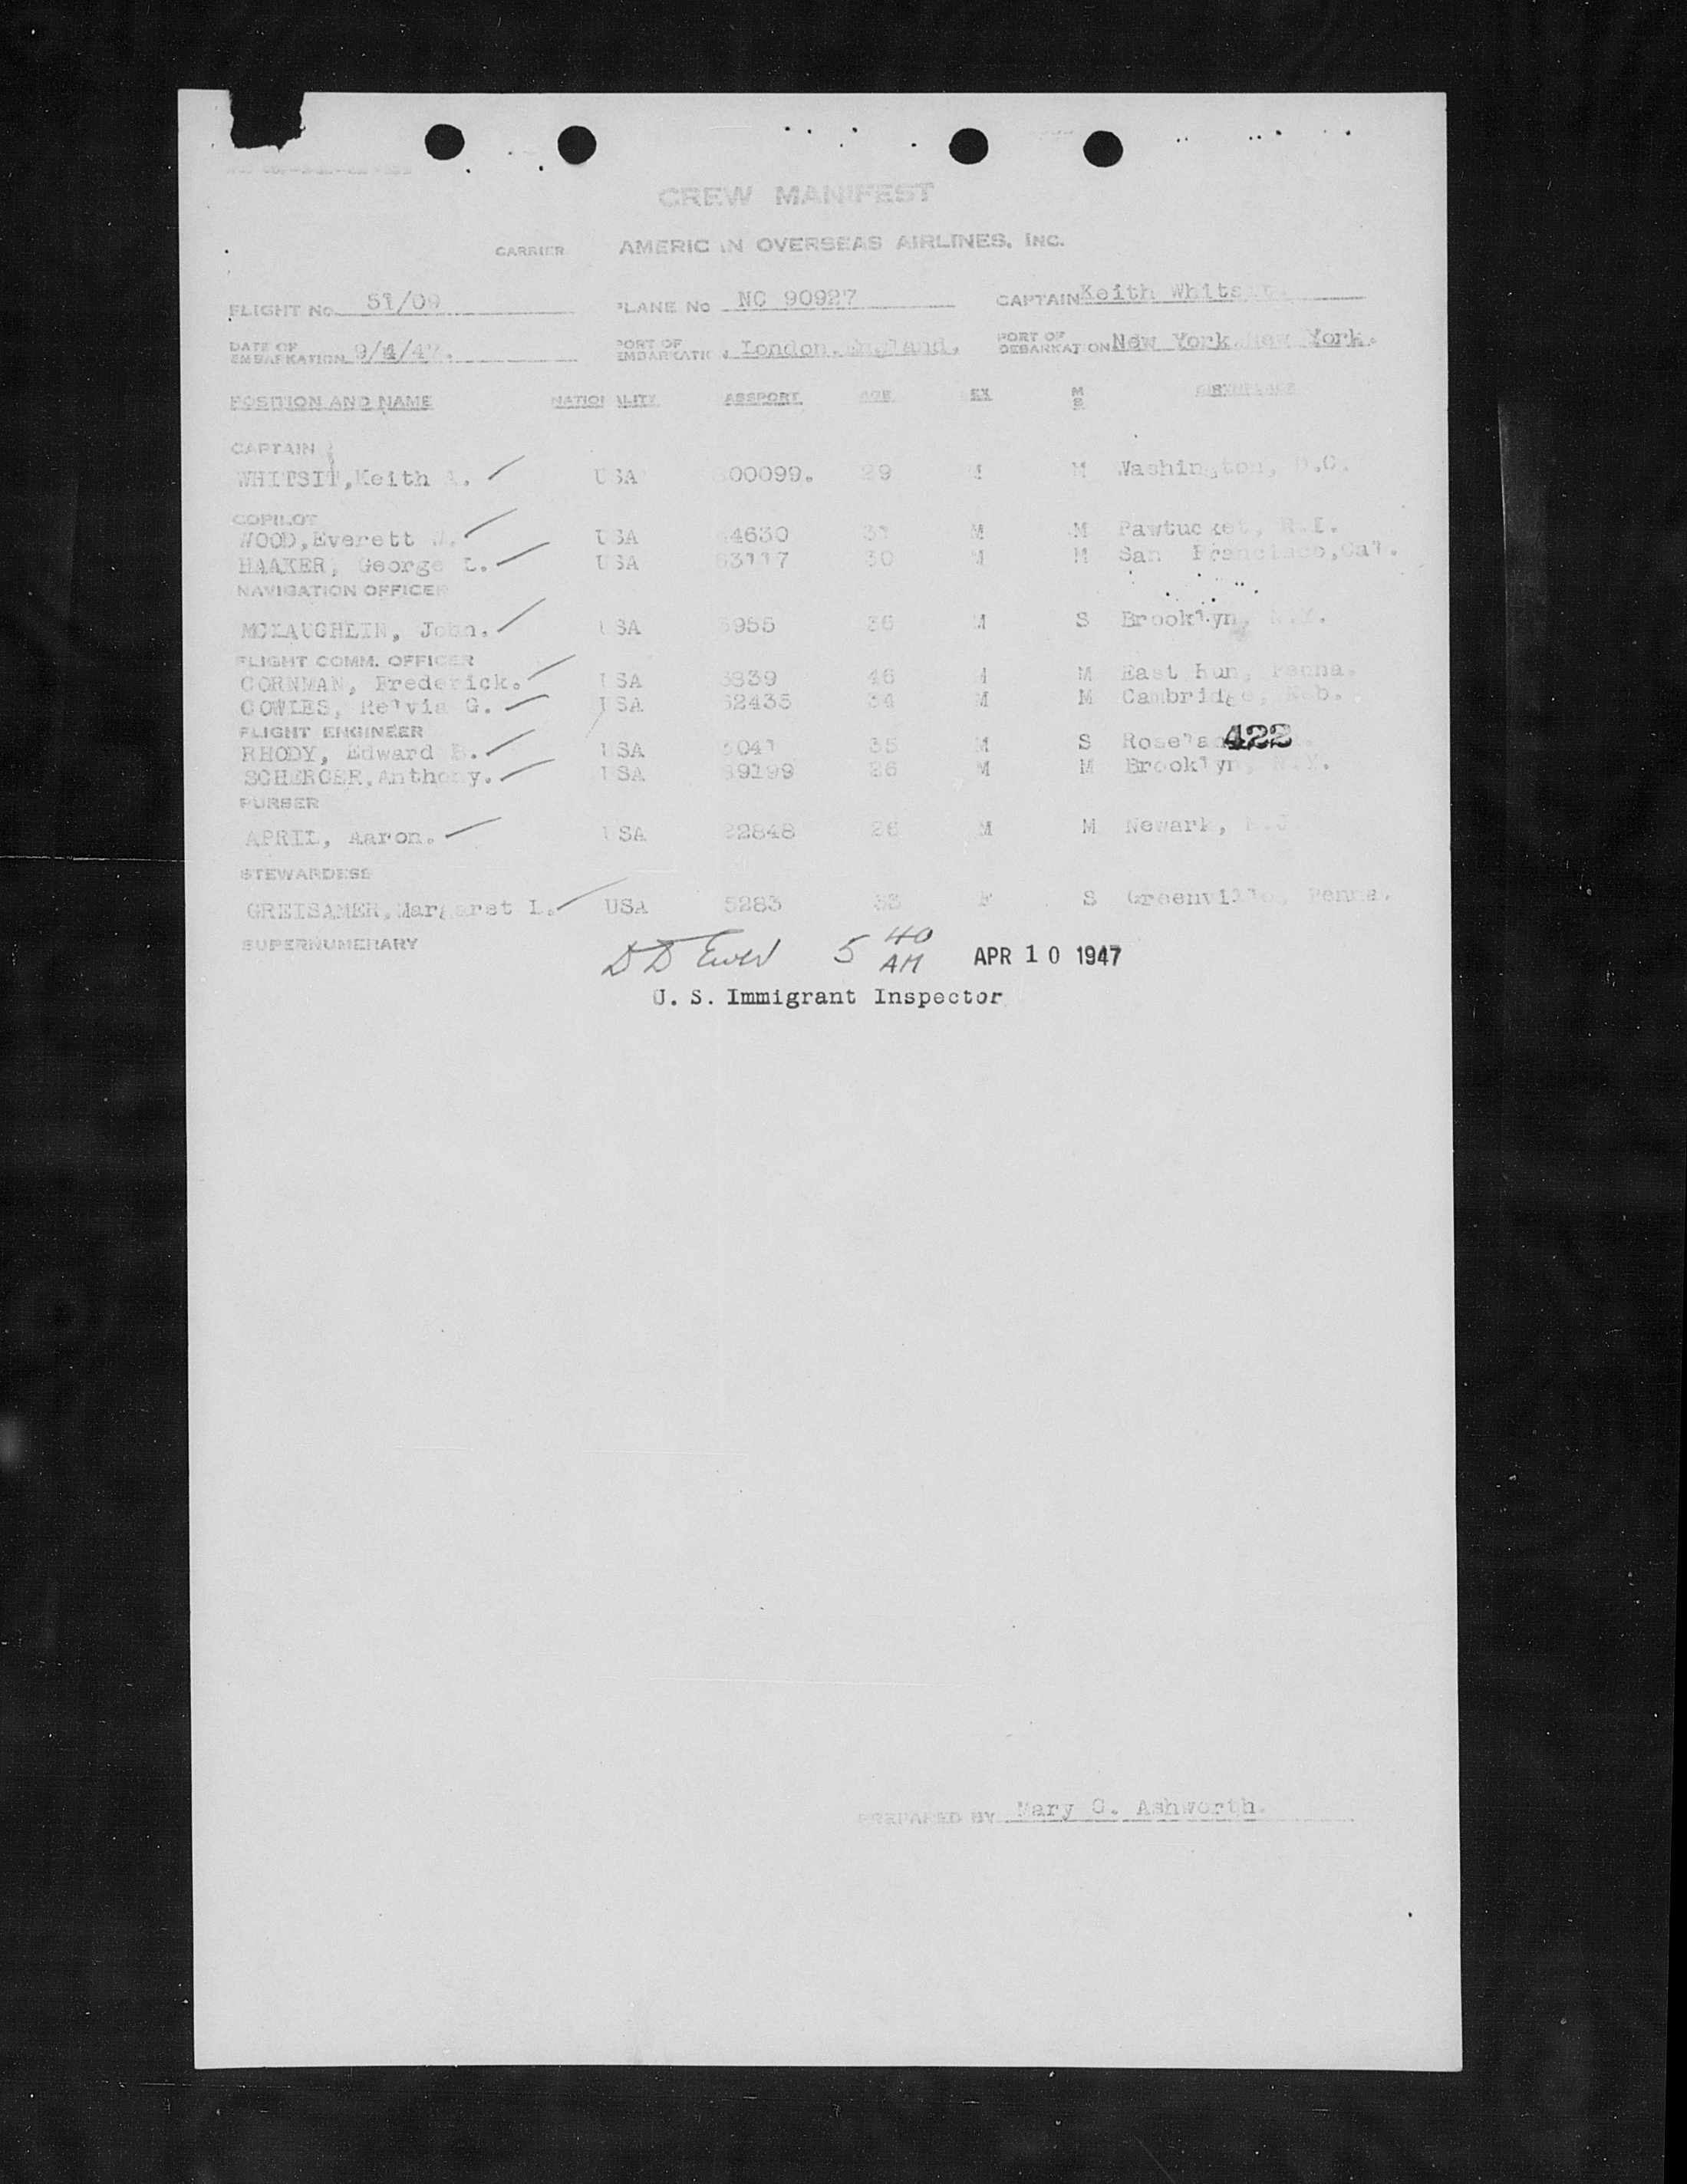 CREW MANIFEST
CARRIER AMERIC N OVERSEAS AIRLINES, INC.
FLIGHT No. 51/09 PLANE No NC 90927 CAPTAIN Keith Whits
DATE OF EMBARKATION 9/4/47. PORT OF EMBARKATI N London, England. PORT OF DEBARKATION New York, New York.
POSITION AND NAME NATION ALITY ASSPORT AGE EX M S BIRTHPLACE
CAPTAIN
WHITSIT, Keith A. USA 00099. 29 M M Washington, D.C.
COPILOT
WOOD, Everett W. USA 4630 31 M M Pawtucket, R.I.
HAAKER, George L. USA 63117 30 M M San Francisco, Cal.
NAVIGATION OFFICER
MCLAUGHLIN, John. USA 5955 36 M S Brooklyn, N.Y.
FLIGHT COMM. OFFICER
CORNMAN, Frederick. USA 3839 46 M M East Run, Penna.
COWLES, Relvia G. USA 62435 34 M M Cambridge, Neb.
FLIGHT ENGINEER
RHODY, Edward B. USA 5041 35 M S Rosela 422
SCHERGER, Anthony. USA 39199 26 M M Brooklyn, N.Y.
PURSER
APRIL, Aaron. USA 22848 26 M M Newark, N.J
STEWARDESS
GREISAMER, Margaret L. USA 5283 33 F S Greenville, Penna.
SUPERNUMERARY
5 40 AM APR 10 1947
U. S. Immigrant Inspector
PREPARED BY Mary G. Ashworth.